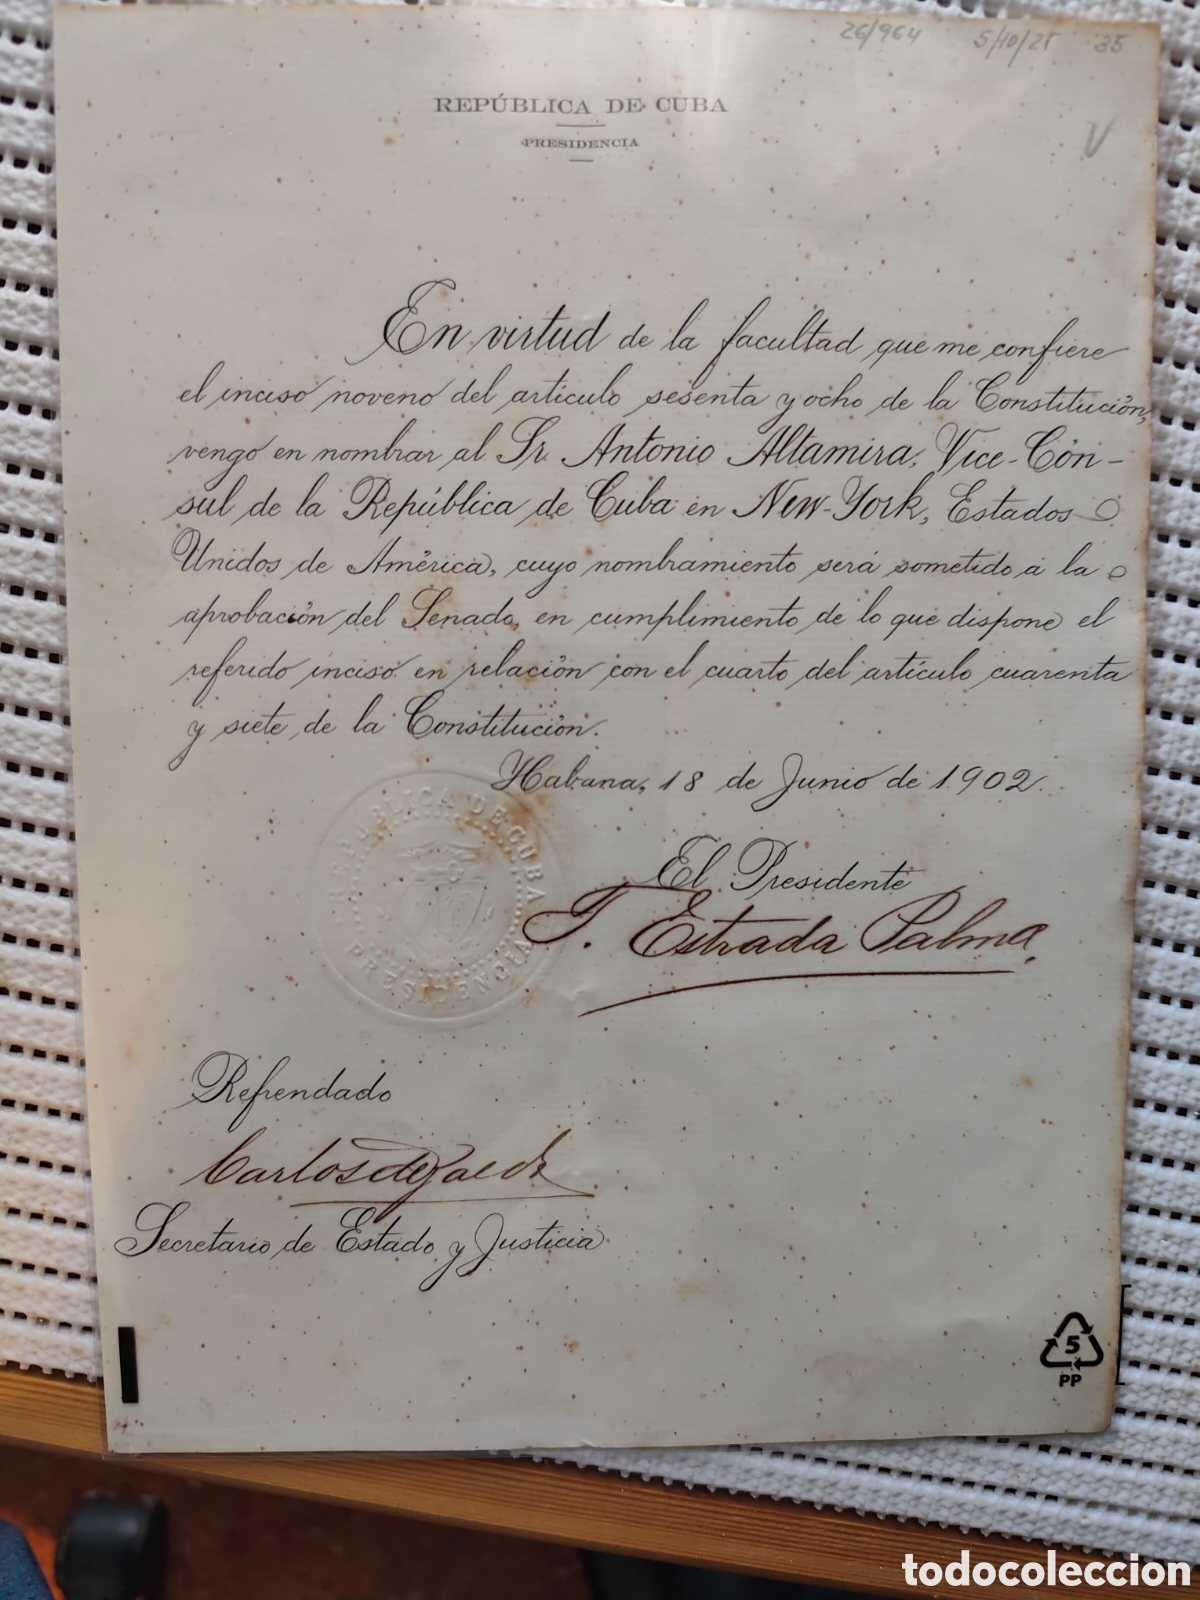 26/964 5/10/21 35
REPÚBLICA DE CUBA
PRESIDENCIA
V
En virtud de la facultad que me confiere
el inciso noveno del artículo sesenta y ocho de la Constitución,
vengo en nombrar al Sr. Antonio Altamira, Vice-Cón-
sul de la República de Cuba en New-York, Estados
Unidos de América, cuyo nombramiento será sometido á la
aprobación del Senado, en cumplimiento de lo que dispone el
referido inciso en relación con el cuarto del artículo cuarenta
y siete de la Constitución.
Habana, 18 de Junio de 1902.
REPUBLICA DE CUBA
PRESIDENCIA
El Presidente
T. Estrada Palma
Refrendado
Carlos de Zaldo
Secretario de Estado y Justicia
5
PP
todocoleccion